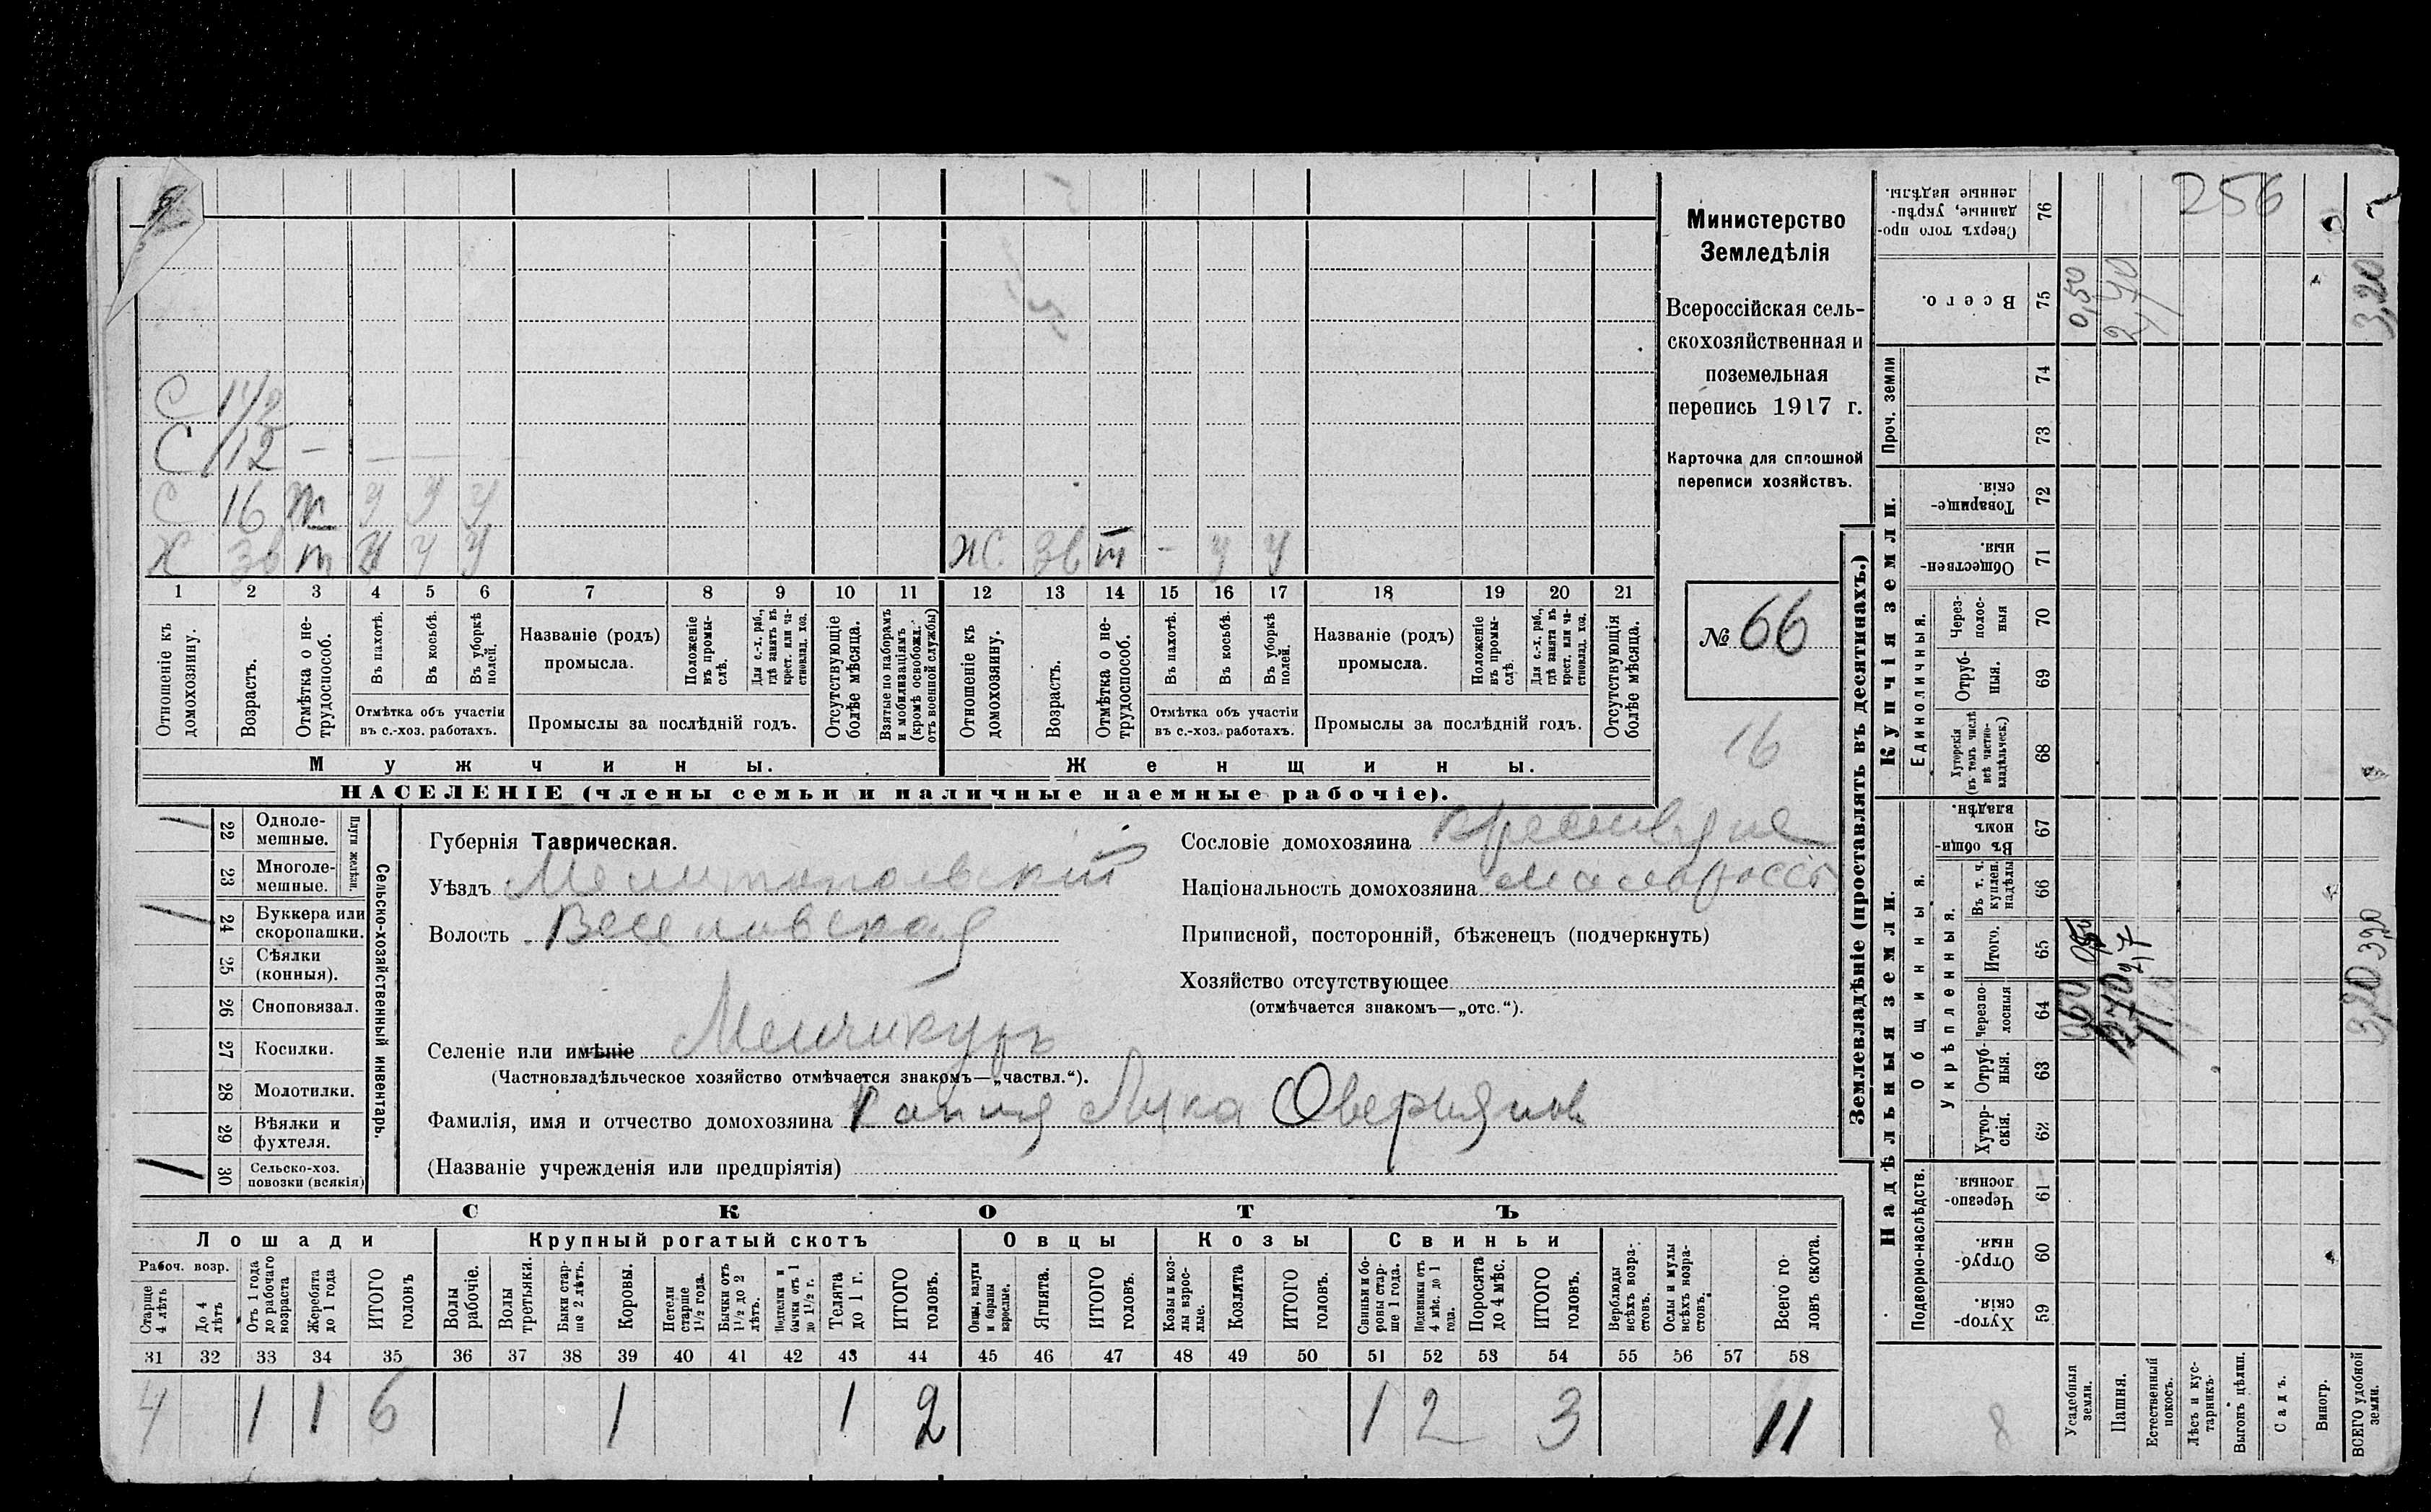 256
С 1 1/2
С 12 — — — —
С 16 т у у у
Х 36 т у у у
Ж 36 т - у у
1 2 3 4 5 6 7 8 9 10 11 12 13 14 15 16 17 18 19 20 21
Отношеніе къ домохозяину.
Возрастъ.
Отмѣтка о не-трудоспособ.
Въ пахотѣ.
Въ косьбѣ.
Въ уборкѣ полей.
Отмѣтка объ участіи
въ с.-хоз. работахъ.
Названіе (родъ)
промысла.
Положеніе въ промы-слѣ.
Для с.-х. раб., гдѣ занятъ въ крест. или ча-стновлад. хоз.
Промыслы за послѣдній годъ.
Отсутствующіе болѣе мѣсяца.
Взятые по наборамъ и мобилизаціямъ (кромѣ освобожд. отъ военной службы)
Отношеніе къ домохозяину.
Возрастъ.
Отмѣтка о не-трудоспособ.
Въ пахотѣ.
Въ косьбѣ.
Въ уборкѣ полей.
Отмѣтка объ участіи
въ с.-хоз. работахъ.
Названіе (родъ)
промысла.
Положеніе въ промы-слѣ.
Для с.-х. раб., гдѣ занята въ крест. или ча-стновлад. хоз.
Промыслы за послѣдній годъ.
Отсутствующія болѣе мѣсяца.
Мужчины.
Женщины.
НАСЕЛЕНІЕ (члены семьи и наличные наемные рабочіе).
Министерство
Земледѣлія
Всероссійская сель-
скохозяйственная и
поземельная
перепись 1917 г.
Карточка для сплошной
переписи хозяйствъ.
№ 66
16
22 Одноле-мешные.
23 Многоле-мешные.
Плуги желѣзн.
24 Буккера или скоропашки.
25 Сѣялки (конныя).
26 Сноповязал.
27 Косилки.
28 Молотилки.
29 Вѣялки и фухтеля.
30 Сельско-хоз. повозки (всякія)
Сельско-хозяйственный инвентарь.
Губернія Таврическая.
Уѣздъ Мелитопольскій
Волость Веселовская
Селеніе или имѣніе Менчикуръ
(Частновладѣльческое хозяйство отмѣчается знакомъ—„частвл.“).
Фамилія, имя и отчество домохозяина Лука Оверьянов
(Названіе учрежденія или предпріятія)
Сословіе домохозяина
Національность домохозяина малоросс
Приписной, посторонній, бѣженецъ (подчеркнуть)
Хозяйство отсутствующее
(отмѣчается знакомъ—„отс.“).
СКОТЪ
Лошади
Крупный рогатый скотъ
Овцы
Козы
Свиньи
Рабоч. возр.
Старще 4 лѣтъ
До 4 лѣтъ
Отъ 1 года до рабочаго возраста
Жеребята до 1 года
ИТОГО головъ
Волы рабочіе.
Волы третьяки.
Быки стар-ше 2 лѣтъ.
Коровы.
Нетели старше 1½ года.
Бычки отъ 1½ до 2 лѣтъ.
Подтелки и бычки отъ 1 до 1½ г.
Телята до 1 г.
ИТОГО головъ.
Овцы, валухи и бараны взрослые.
Ягнята.
ИТОГО головъ.
Козы и коз-лы взрос-лые.
Козлята
ИТОГО головъ.
Свиньи и бо-ровы стар-ше 1 года.
Подсвинки отъ 4 мѣс. до 1 года.
Поросята до 4 мѣс.
ИТОГО головъ.
Верблюды всѣхъ возра-стовъ.
Ослы и мулы всѣхъ возра-стовъ.
Всего го-ловъ скота.
31 32 33 34 35 36 37 38 39 40 41 42 43 44 45 46 47 48 49 50 51 52 53 54 55 56 57 58
4 1 1 6 1 1 2 1 2 3 11
Землевладѣніе (проставлять въ десятинахъ.)
Надѣльныя земли.
Купчія земли.
Проч. земли
Подворно-наслѣдств.
Общинныя.
Укрѣпленныя.
Единоличныя.
Сверхъ того про-данные, укрѣп-ленные надѣлы. 76
Всего. 75
74
73
Товарище-скія. 72
Обществен-ныя. 71
Через-полос-ныя 70
Отруб-ныя. 69
Хуторскія (въ томъ числѣ всѣ частно-владѣльческ.) 68
Въ общин-номъ владѣн. 67
Въ т. ч. куплен. надѣлы 66
Итого. 65
Черезпо-лосныя 64
Отруб-ныя. 63
Хутор-скія. 62
Черезпо-лосныя. 61
Отруб-ныя. 60
Хутор-скія. 59
Усадебныя земли.
Пашня.
Естественный покосъ.
Лѣсъ и кус-тарникъ.
Выгонъ цѣлин.
Садъ.
Виногр.
ВСЕГО удобной земли.
0,50
2,70
3,20
0,50
2,7
3,20
3,20
8